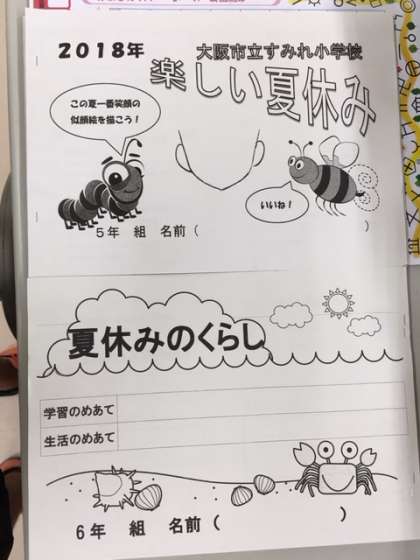 2018年
大阪市立すみれ小学校
楽しい夏休み
この夏一番笑顔の
似顔絵を描こう！
いいね！
5年 組 名前（ ）
夏休みのくらし
学習のめあて
生活のめあて
6年 組 名前（ ）